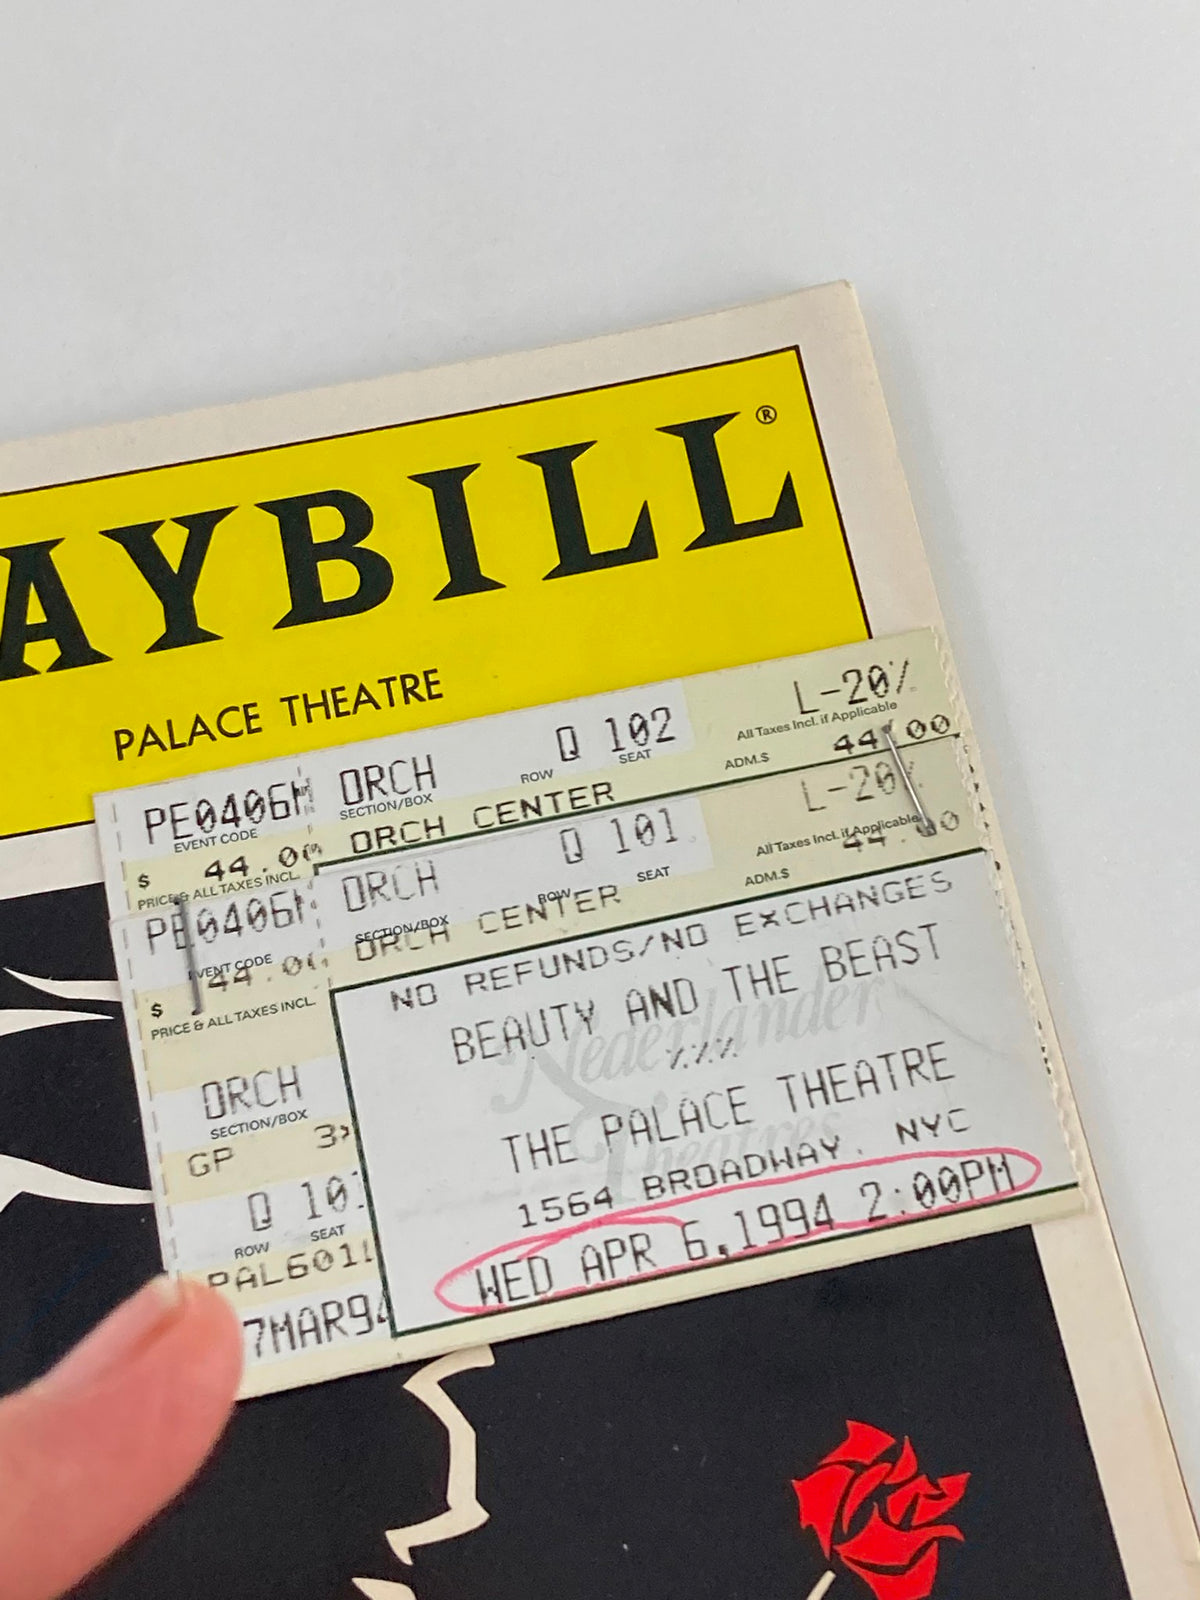 AYBILL®
PALACE THEATRE
PE0406M ORCH Q 102 L-20%
EVENT CODE SECTION/BOX ROW SEAT All Taxes Incl. if Applicable
$ 44.00 ORCH CENTER ADM.$ 44.00
PRICE & ALL TAXES INCL.
PE0406M ORCH Q 101 L-20%
EVENT CODE SECTION/BOX ROW SEAT All Taxes Incl. if Applicable
$ 44.00 ORCH CENTER ADM.$ 44.00
PRICE & ALL TAXES INCL.
NO REFUNDS/NO EXCHANGES
BEAUTY AND THE BEAST
Nederlander
Theatres
THE PALACE THEATRE
1564 BROADWAY, NYC
WED APR 6,1994 2:00PM
ORCH
SECTION/BOX
GP 3
Q 101
ROW SEAT
PAL6011
7MAR94